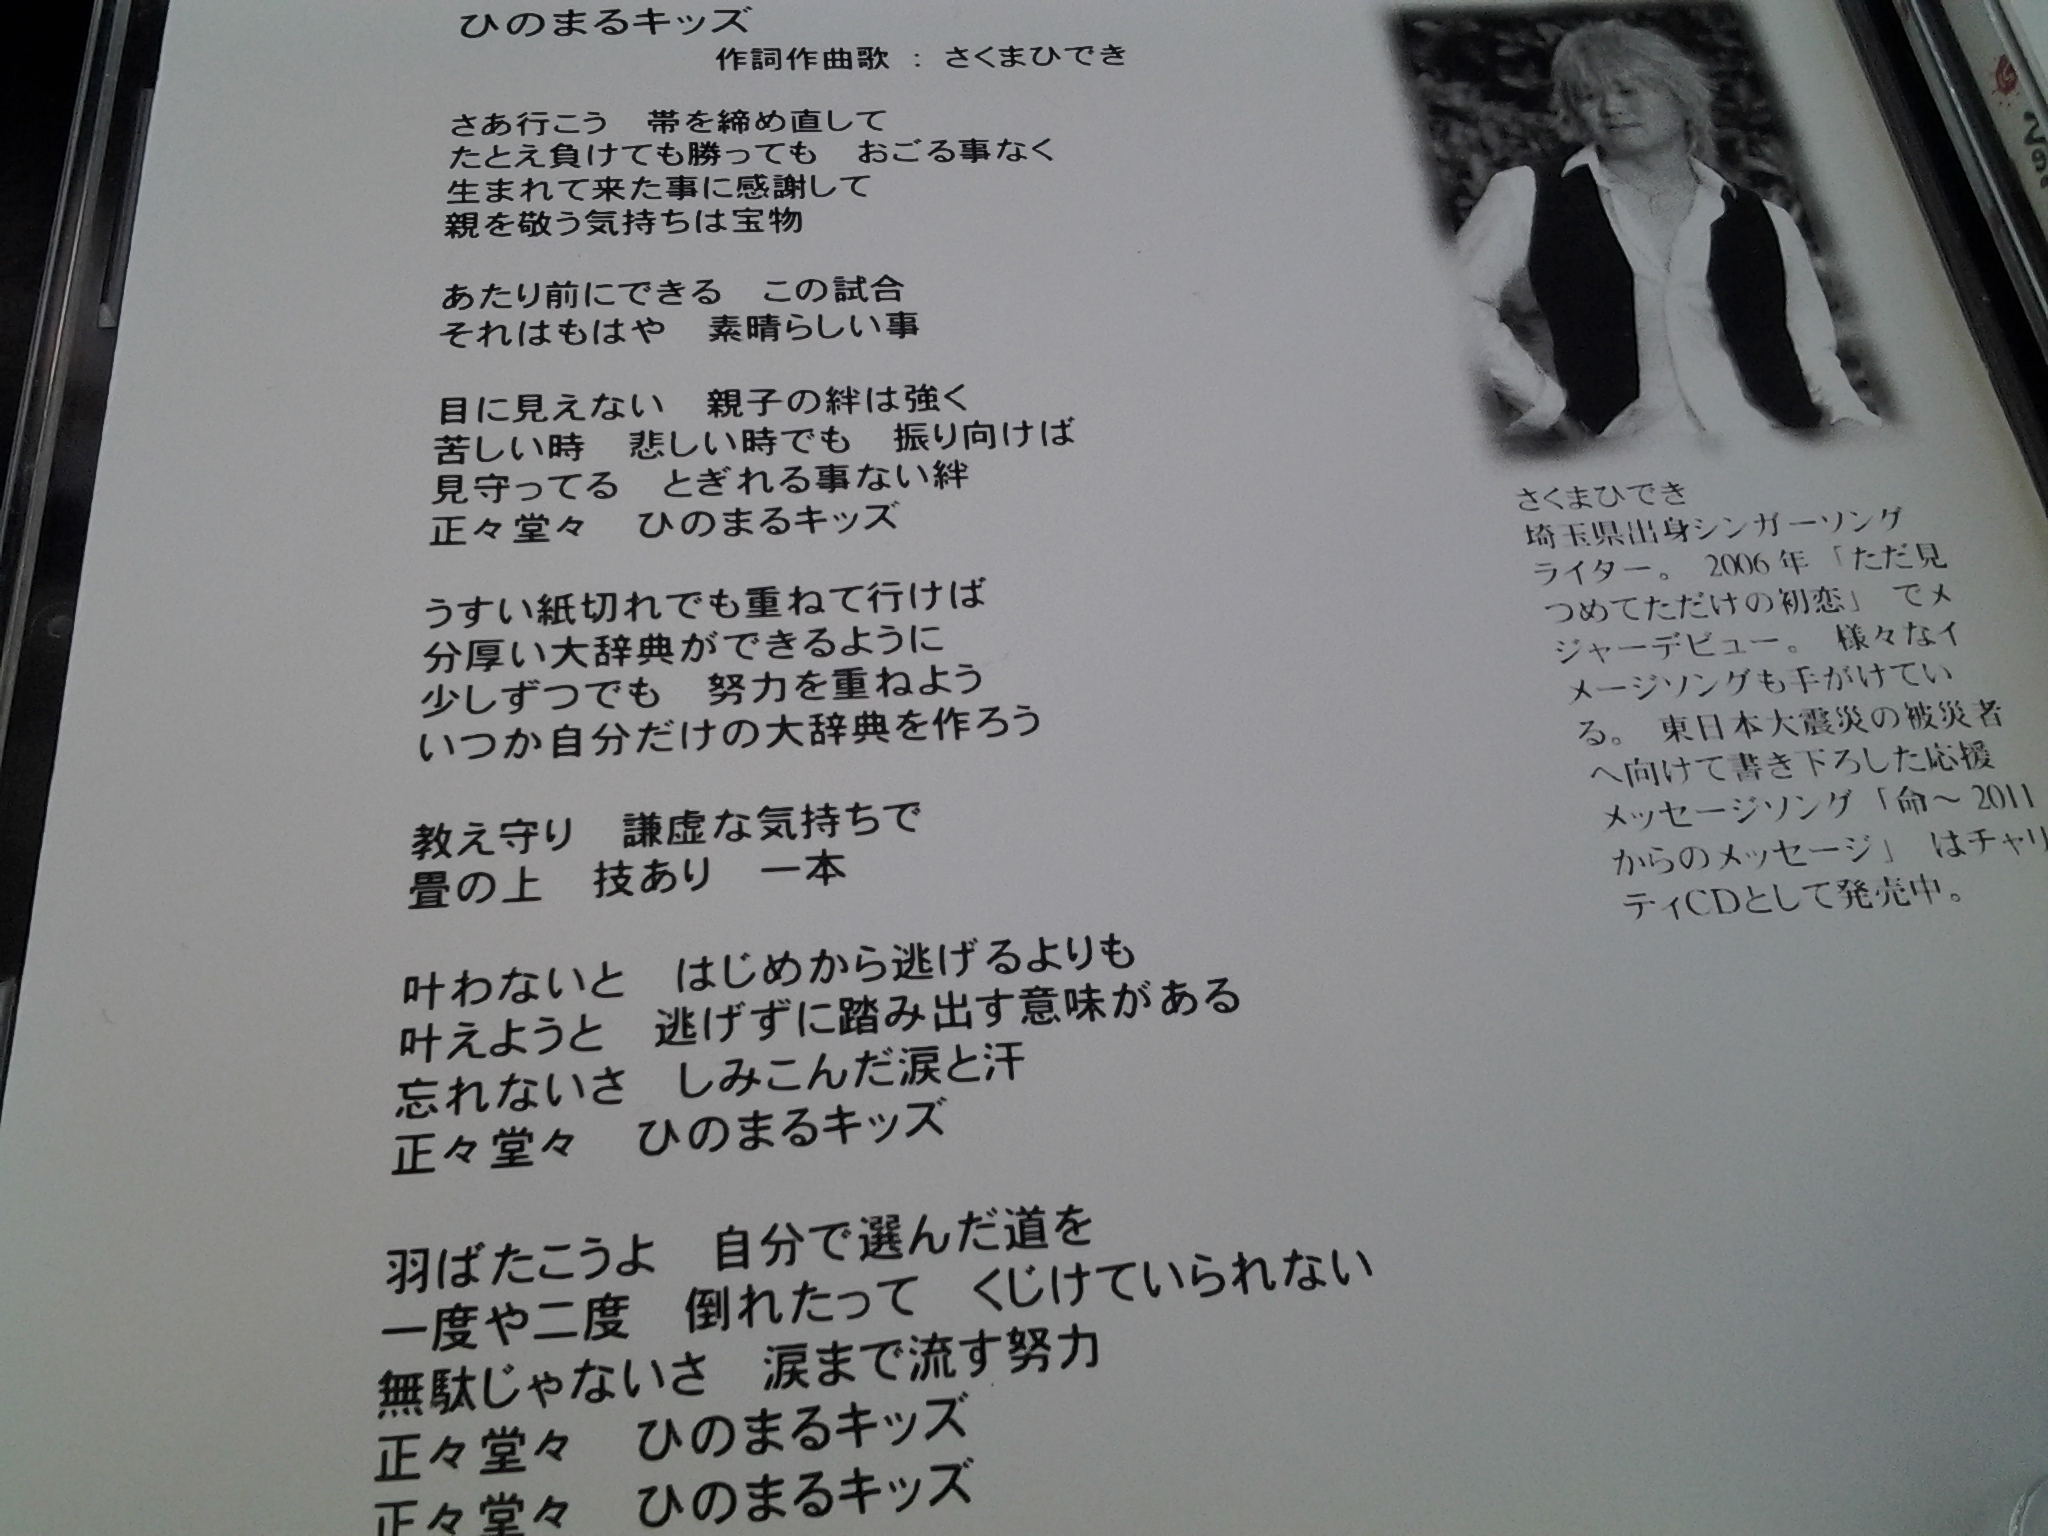 ひのまるキッズ
作詞作曲歌 : さくまひでき
さあ行こう　帯を締め直して
たとえ負けても勝っても　おごる事なく
生まれて来た事に感謝して
親を敬う気持ちは宝物
あたり前にできる　この試合
それはもはや　素晴らしい事
目に見えない　親子の絆は強く
苦しい時　悲しい時でも　振り向けば
見守ってる　とぎれる事ない絆
正々堂々　ひのまるキッズ
うすい紙切れでも重ねて行けば
分厚い大辞典ができるように
少しずつでも　努力を重ねよう
いつか自分だけの大辞典を作ろう
教え守り　謙虚な気持ちで
畳の上　技あり　一本
叶わないと　はじめから逃げるよりも
叶えようと　逃げずに踏み出す意味がある
忘れないさ　しみこんだ涙と汗
正々堂々　ひのまるキッズ
羽ばたこうよ　自分で選んだ道を
一度や二度　倒れたって　くじけていられない
無駄じゃないさ　涙まで流す努力
正々堂々　ひのまるキッズ
正々堂々　ひのまるキッズ
さくまひでき
埼玉県出身シンガーソング
ライター。 2006年「ただ見
つめてただけの初恋」 でメ
ジャーデビュー。 様々なイ
メージソングも手がけてい
る。 東日本大震災の被災者
へ向けて書き下ろした応援
メッセージソング「命～2011
からのメッセージ」 はチャリ
ティCDとして発売中。